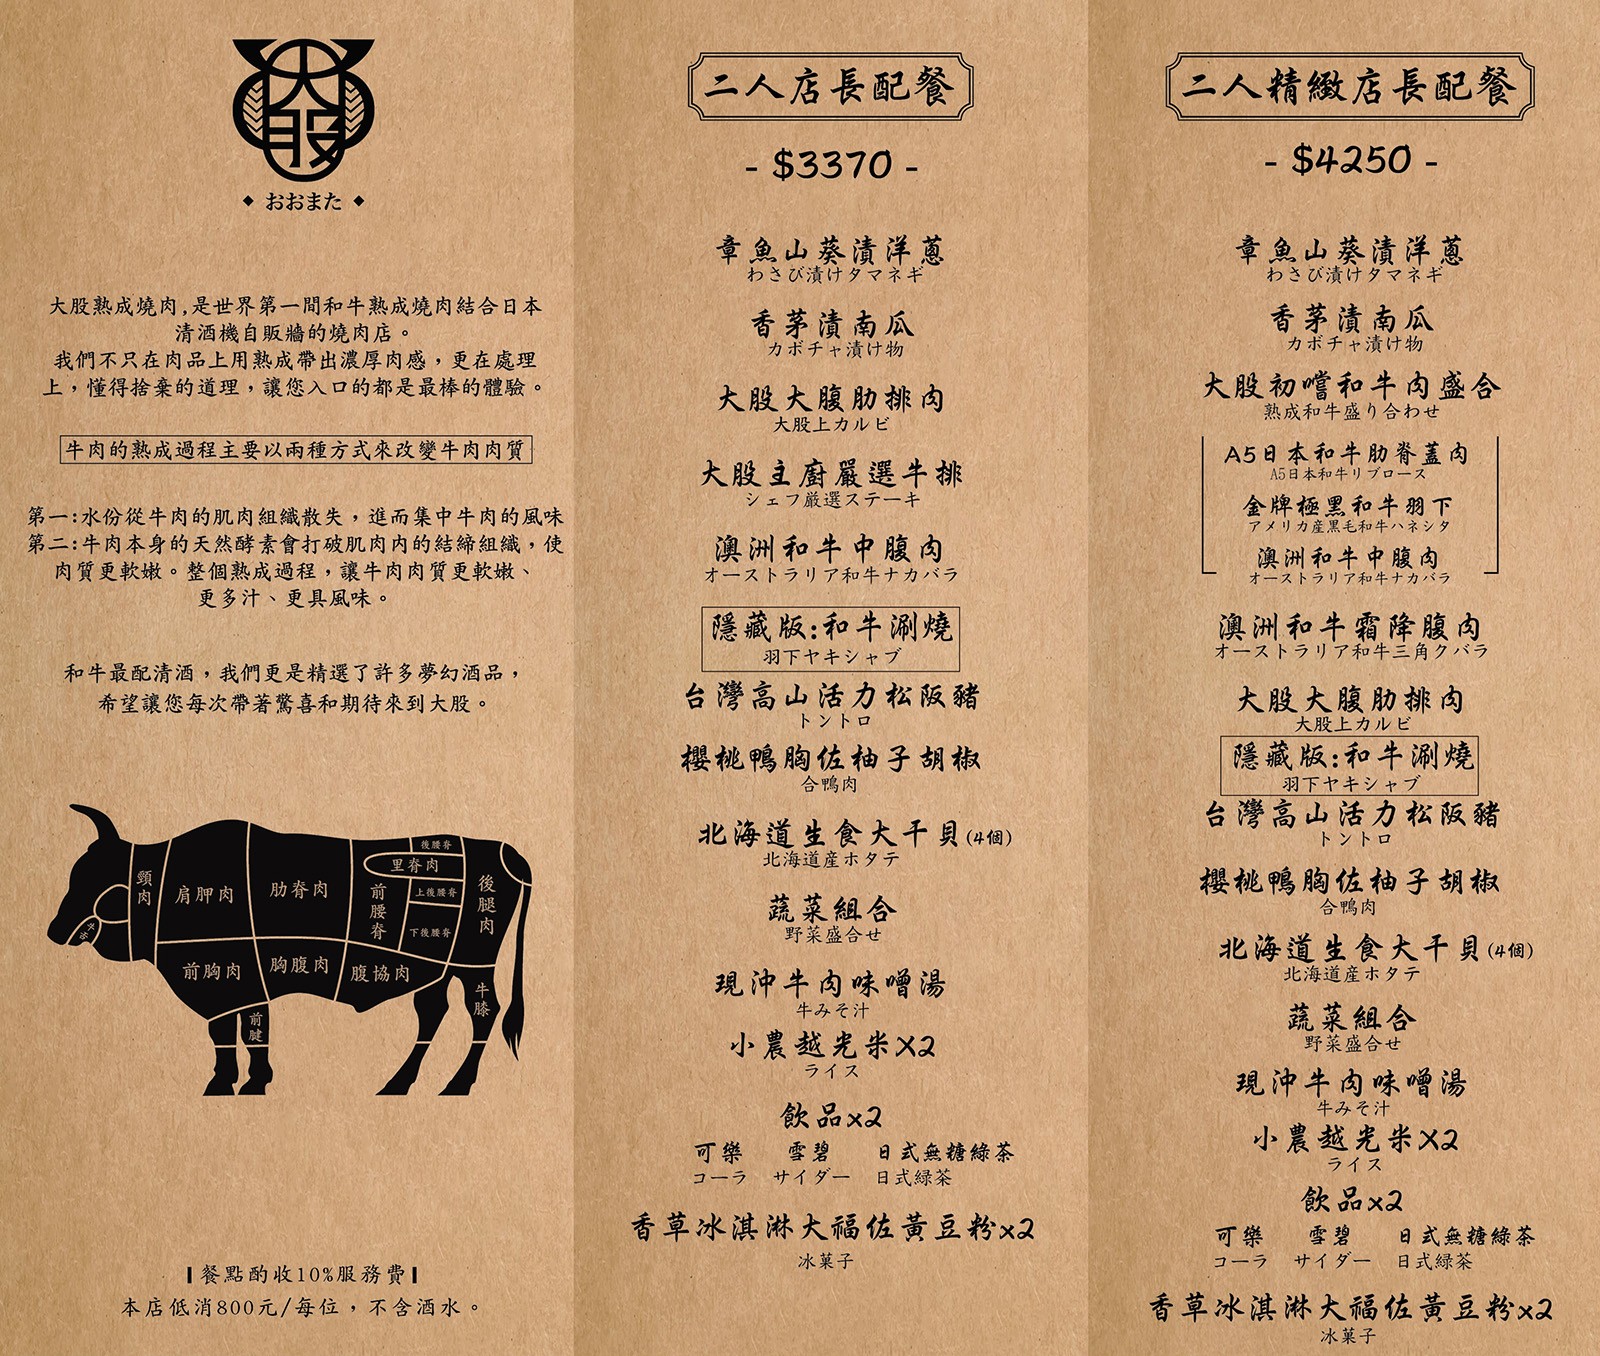 大股
おおまた
大股熟成燒肉,是世界第一間和牛熟成燒肉結合日本
清酒機自販牆的燒肉店。
我們不只在肉品上用熟成帶出濃厚肉感，更在處理
上，懂得捨棄的道理，讓您入口的都是最棒的體驗。
牛肉的熟成過程主要以兩種方式來改變牛肉肉質
第一:水份從牛肉的肌肉組織散失，進而集中牛肉的風味
第二:牛肉本身的天然酵素會打破肌肉內的結締組織，使
肉質更軟嫩。整個熟成過程，讓牛肉肉質更軟嫩、
更多汁、更具風味。
和牛最配清酒，我們更是精選了許多夢幻酒品，
希望讓您每次帶著驚喜和期待來到大股。
頸肉
肩胛肉
肋脊肉
前腰脊
後腰脊
里脊肉
上後腰脊
下後腰脊
後腿肉
牛舌
前胸肉
胸腹肉
腹協肉
牛膝
前腱
餐點酌收10%服務費
本店低消800元/每位，不含酒水。
二人店長配餐
- $3370 -
章魚山葵漬洋蔥
わさび漬けタマネギ
香茅漬南瓜
カボチャ漬け物
大股大腹肋排肉
大股上カルビ
大股主廚嚴選牛排
シェフ厳選ステーキ
澳洲和牛中腹肉
オーストラリア和牛ナカバラ
隱藏版:和牛涮燒
羽下ヤキシャブ
台灣高山活力松阪豬
トントロ
櫻桃鴨胸佐柚子胡椒
合鴨肉
北海道生食大干貝(4個)
北海道産ホタテ
蔬菜組合
野菜盛合せ
現沖牛肉味噌湯
牛みそ汁
小農越光米X2
ライス
飲品x2
可樂 雪碧 日式無糖綠茶
コーラ サイダー 日式緑茶
香草冰淇淋大福佐黃豆粉x2
冰菓子
二人精緻店長配餐
- $4250 -
章魚山葵漬洋蔥
わさび漬けタマネギ
香茅漬南瓜
カボチャ漬け物
大股初嚐和牛肉盛合
熟成和牛盛り合わせ
A5日本和牛肋脊蓋肉
A5日本和牛リブロース
金牌極黑和牛羽下
アメリカ産黒毛和牛ハネシタ
澳洲和牛中腹肉
オーストラリア和牛ナカバラ
澳洲和牛霜降腹肉
オーストラリア和牛三角クバラ
大股大腹肋排肉
大股上カルビ
隱藏版:和牛涮燒
羽下ヤキシャブ
台灣高山活力松阪豬
トントロ
櫻桃鴨胸佐柚子胡椒
合鴨肉
北海道生食大干貝(4個)
北海道産ホタテ
蔬菜組合
野菜盛合せ
現沖牛肉味噌湯
牛みそ汁
小農越光米X2
ライス
飲品x2
可樂 雪碧 日式無糖綠茶
コーラ サイダー 日式緑茶
香草冰淇淋大福佐黃豆粉x2
冰菓子